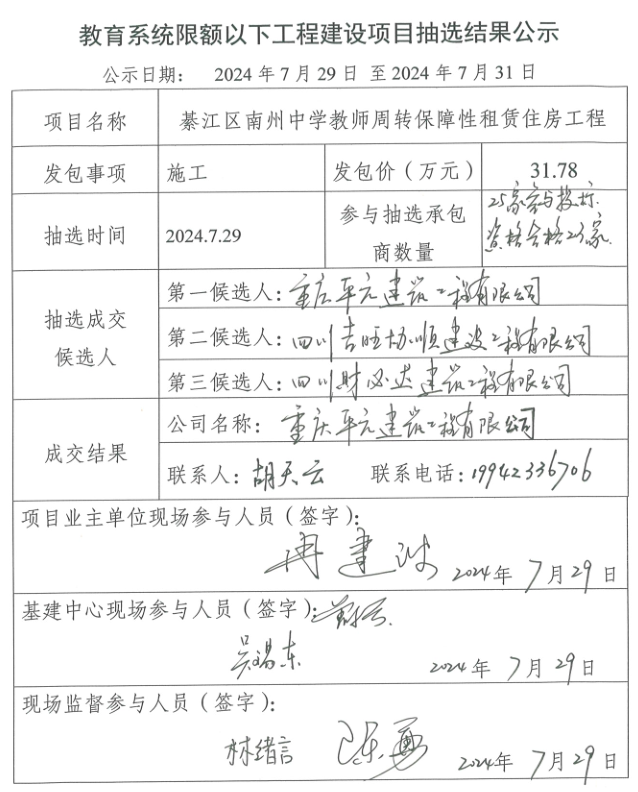 教育系统限额以下工程建设项目抽选结果公示
公示日期： 2024 年 7 月 29 日 至 2024 年 7 月 31 日
项目名称 綦江区南州中学教师周转保障性租赁住房工程
发包事项 施工 发包价（万元） 31.78
抽选时间 2024.7.29 参与抽选承包商数量 25家参与投标.
资格合格23家.
抽选成交候选人
第一候选人：重庆平元建筑工程有限公司
第二候选人：四川吉旺协顺建设工程有限公司
第三候选人：四川财必达建筑工程有限公司
成交结果
公司名称：重庆平元建筑工程有限公司
联系人：胡天云 联系电话：19942336706
项目业主单位现场参与人员（签字）：
冉建波 2024年 7月29日
基建中心现场参与人员（签字）：
吴锡东 2024年 7月29日
现场监督参与人员（签字）：
林绪言 陈勇 2024年 7月29日